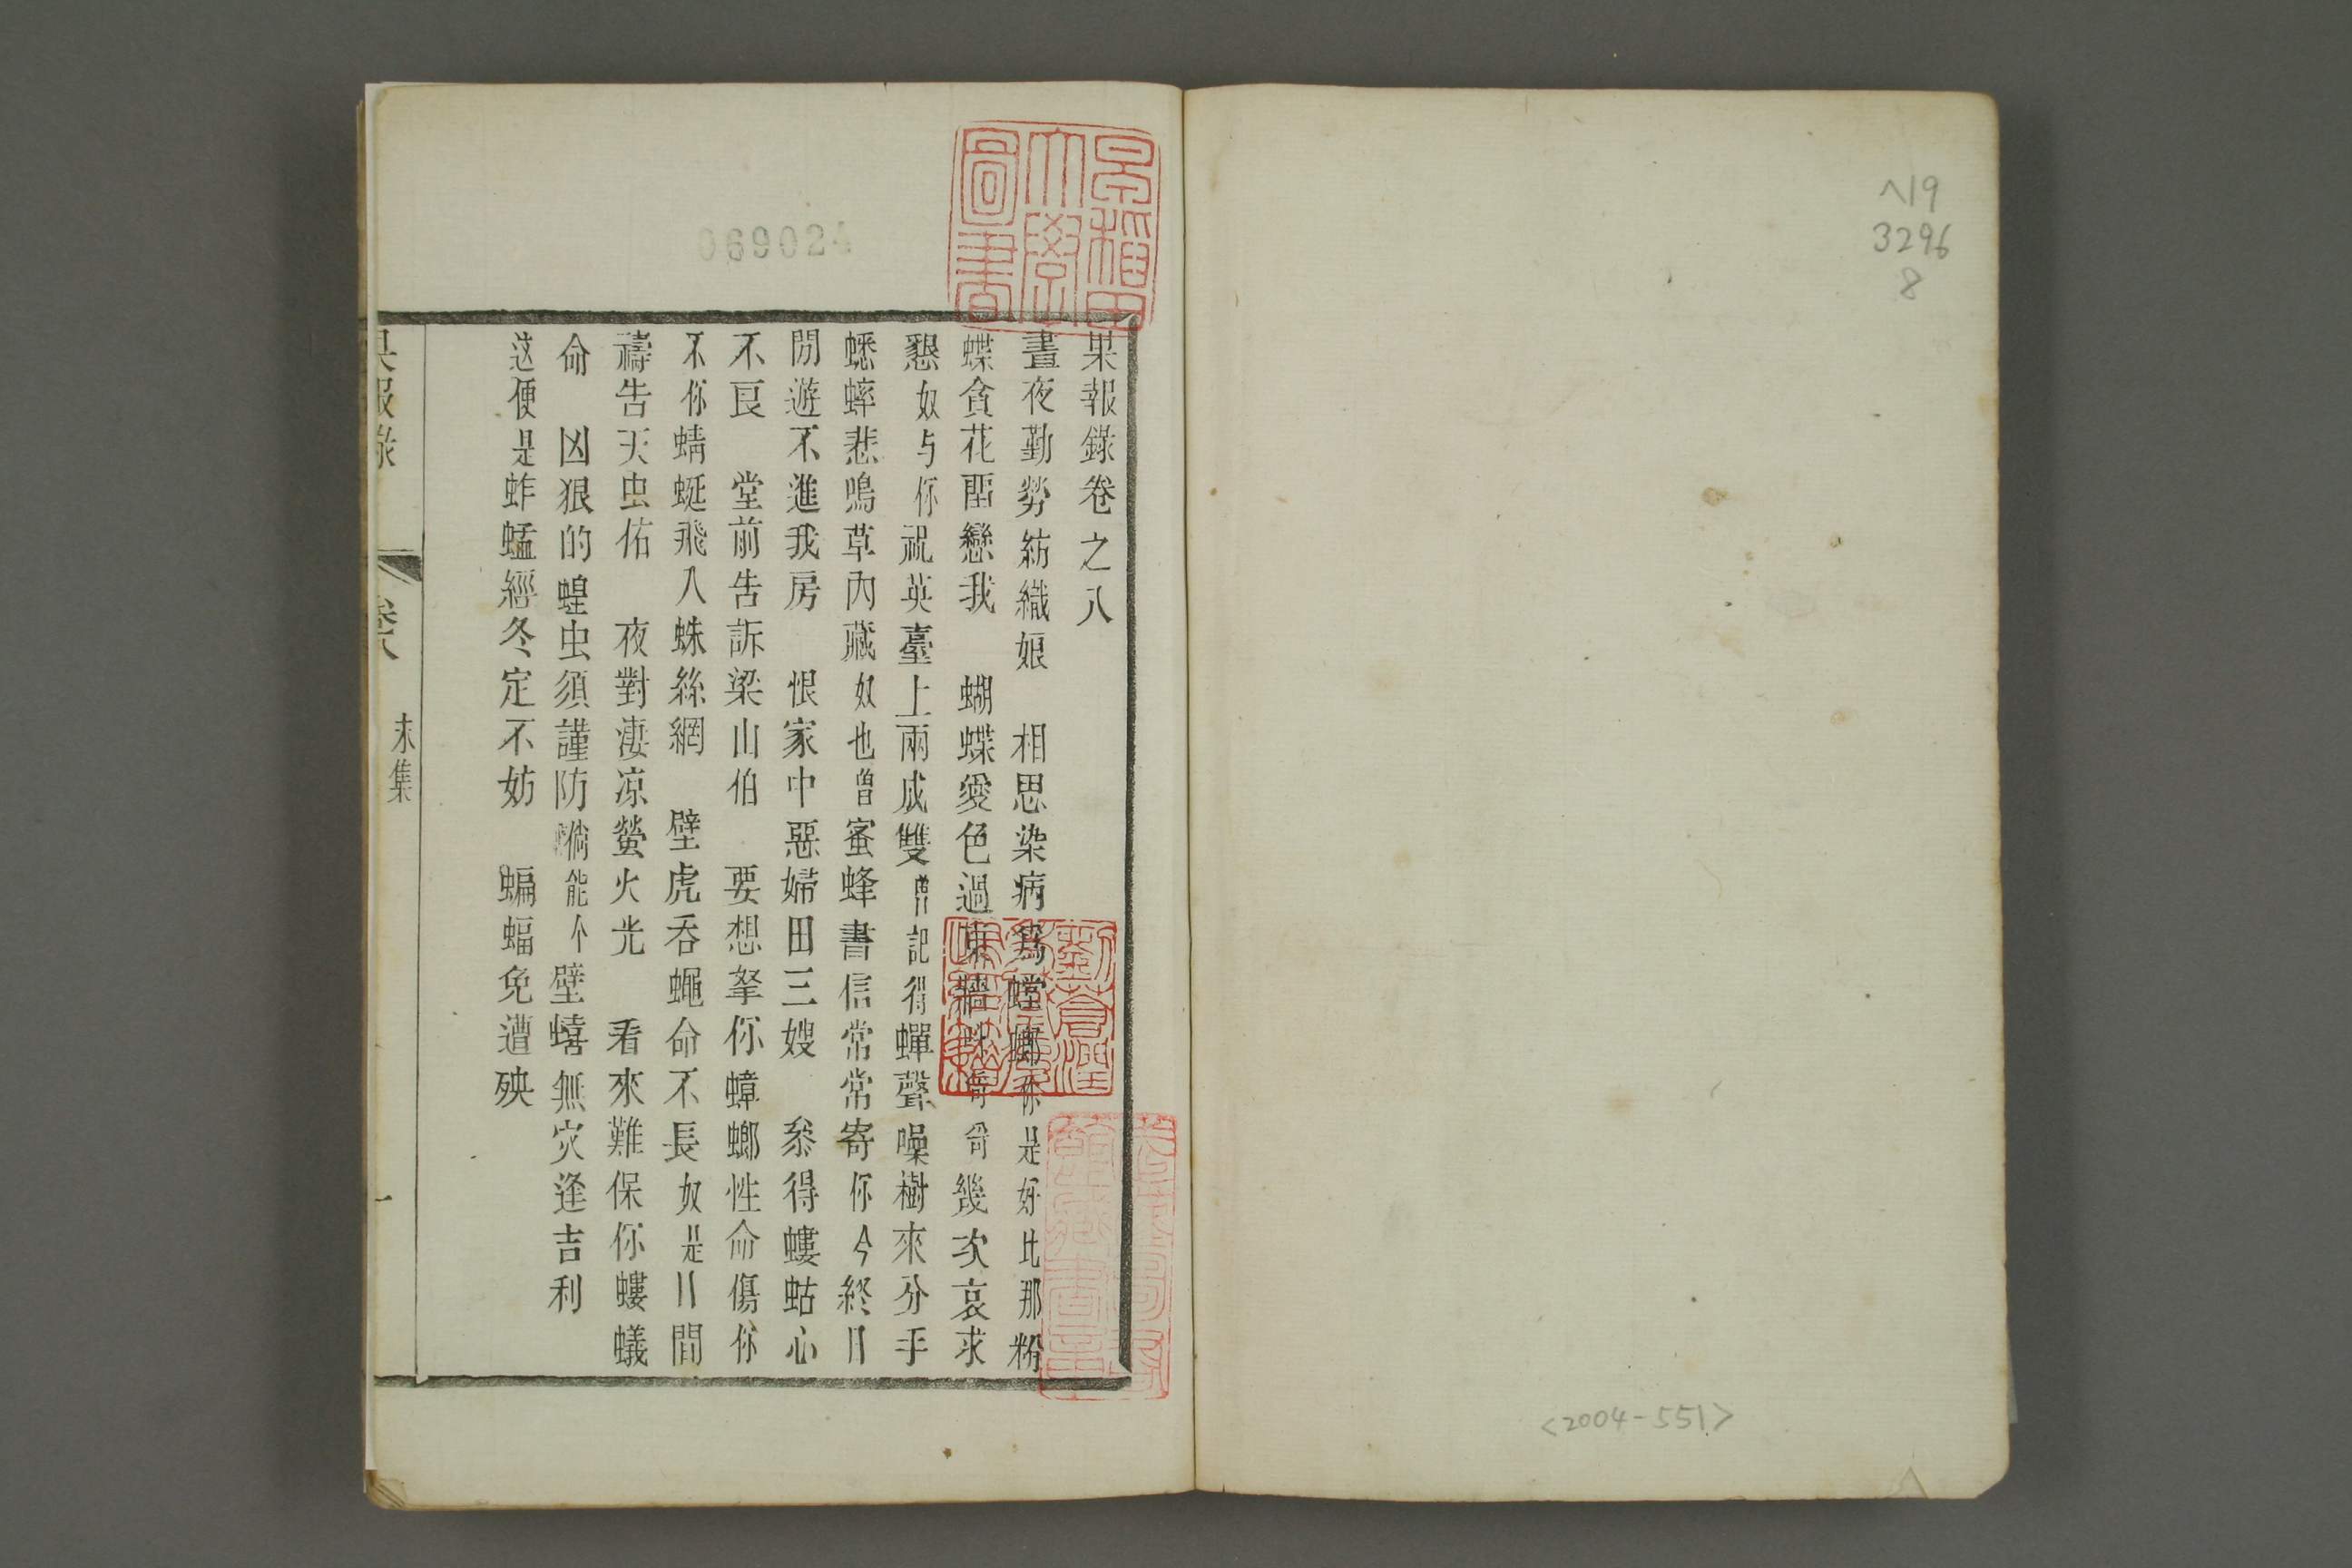 ヘ19
3296
8
<2004-551>
早稲田大學圖書
069024
果報錄卷之八
晝夜勤勞紡織娘　相思染病爲螳螂你是好比那粉
蝶貪花鬧戀我　蝴蝶愛色過東牆蛛哥哥幾次哀求
懇奴与你祝英臺上兩成雙曽記得蟬聲噪樹來分手
蟋蟀悲鳴草內藏奴也曽蜜蜂書信常常寄你今終日
閒遊不進我房　恨家中惡婦田三嫂　叅得螻蛄心
不良　堂前告訴梁山伯　要想拏你蟑螂性命傷你
不你蜻蜓飛入蛛絲網　壁虎吞蠅命不長奴是日間
禱告天虫佑　夜對凄凉螢火光　看來難保你螻蟻
命　凶狠的蝗虫須謹防倘能个壁蟢無灾逢吉利
这便是蚱蜢經冬定不妨　蝙蝠免遭殃
果報錄
卷八
末集
一